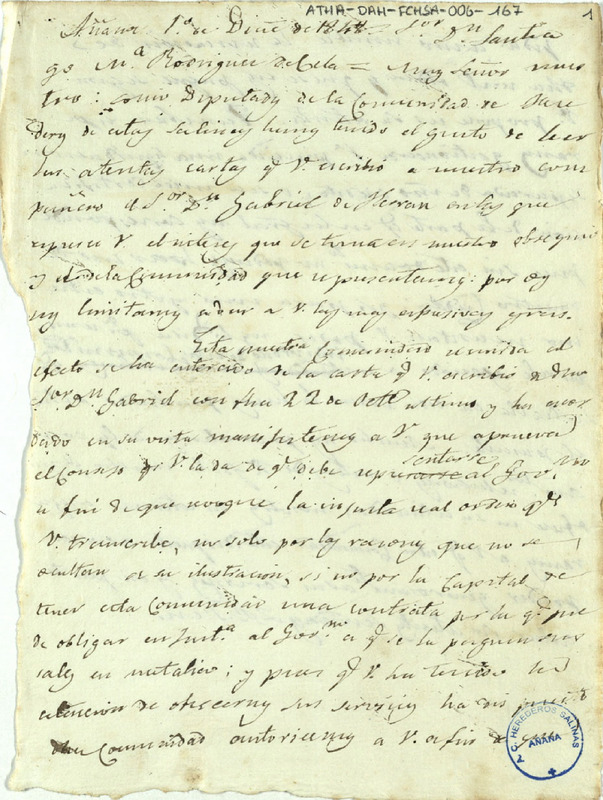 ATHA-DAH-FCHSA-006-167
1
Añana 1º de Dice de 184 Sor Dn Santia
go Ma Rodriguez de Cela = Muy Señor nues
tro: como Diputados de la Comunidad de
de estas Salinas hemos tenido el gusto de leer
las atentas cartas q V. escribio a nuestro com
pañero el Sor Dn Gabriel de Herran en las que
espresa V. el interes que se toma en nuestro obsequio
y el de la Comunidad que representamos: por
nos limitamos a dar a V. las mas espresivas gras.
Esta nuestra Comunidad reunida al
efecto se ha enterado de la carta q V. escribio a dho
Sor Dn Gabriel con fha 22 de Octe ultimo y ha acor
dado en su vista manifestemos a V. que aprueva
el Consejo qe V. la da de q debe representarse al Gov.no
a fin de que revoque la injusta real orden qe
V. transcribe, no solo por las razones que no se
ocultan a su ilustracion, si no por la Capital de
tener esta Comunidad una contrata por la qe pue
de obligar en Justa al Gov.no a q se la paguen sus
sales en metalico; y pues q V. ha tenido la
atencion de ofrecernos sus servicios ha
dha Comunidad autoricemos a V. a fin de
C. HEREDEROS SALINAS
AÑANA